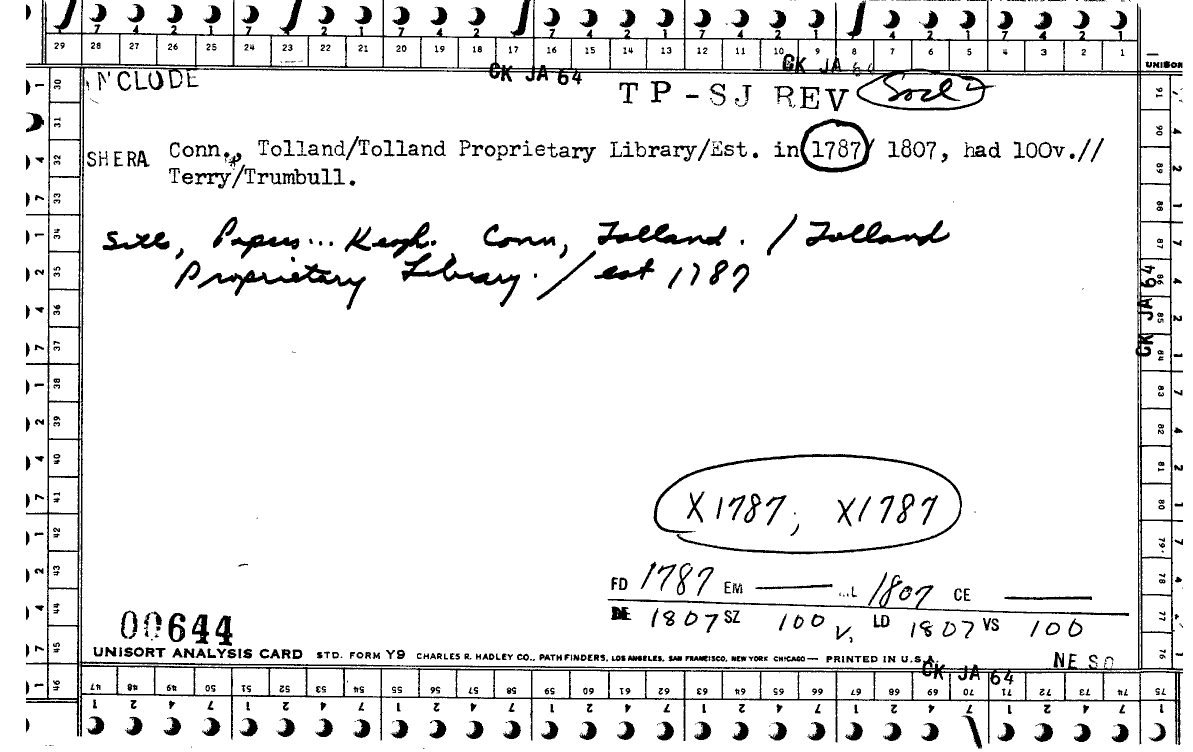 7 4 2 1 7 4 2 1 7 4 2 1 7 4 2 1 7 4 2 1 7 4 2 1 7 4 2 1
29 28 27 26 25 24 23 22 21 20 19 18 17 16 15 14 13 12 11 10 9 8 7 6 5 4 3 2 1
UNISORT
CK JA 64
CK JA 64
INCLUDE
TP-SJ REV
SHERA Conn., Tolland/Tolland Proprietary Library/Est. in 1787/ 1807, had 100v.//
Terry/Trumbull.
Papers... Keogh. Conn, Tolland. / Tolland
Proprietary Library. / est 1787
CK JA 64
X1787; X1787
FD 1787 EM —— ...L 1807 CE ——
1807 SZ 100 v. LD 1807 VS 100
00644
UNISORT ANALYSIS CARD STD. FORM Y9 CHARLES R. HADLEY CO., PATHFINDERS, LOS ANGELES, SAN FRANCISCO, NEW YORK CHICAGO — PRINTED IN U.S.A.
NE SO
CK JA 64
30 31 32 33 34 35 36 37 38 39 40 41 42 43 44 45 46
91 90 89 88 87 86 85 84 83 82 81 80 79 78 77 76 75
47 48 49 50 51 52 53 54 55 56 57 58 59 60 61 62 63 64 65 66 67 68 69 70 71 72 73 74
1 2 4 7 1 2 4 7 1 2 4 7 1 2 4 7 1 2 4 7 1 2 4 7 1 2 4 7 1